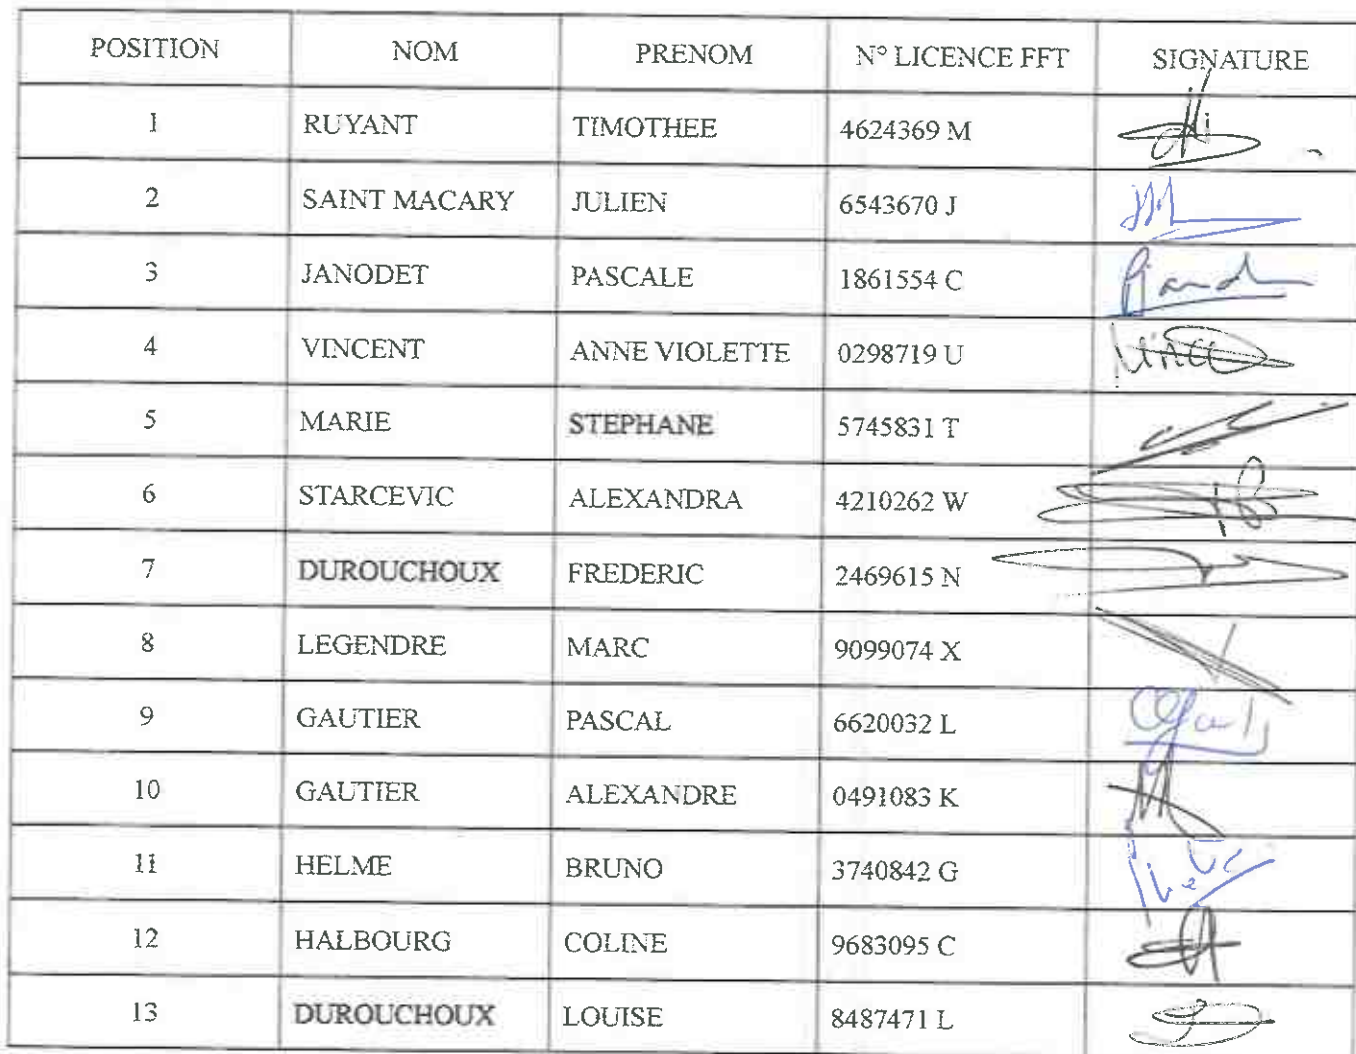 POSITION NOM PRENOM N° LICENCE FFT SIGNATURE
1 RUYANT TIMOTHEE 4624369 M
2 SAINT MACARY JULIEN 6543670 J
3 JANODET PASCALE 1861554 C
4 VINCENT ANNE VIOLETTE 0298719 U
5 MARIE STEPHANE 5745831 T
6 STARCEVIC ALEXANDRA 4210262 W
7 DUROUCHOUX FREDERIC 2469615 N
8 LEGENDRE MARC 9099074 X
9 GAUTIER PASCAL 6620032 L
10 GAUTIER ALEXANDRE 0491083 K
11 HELME BRUNO 3740842 G
12 HALBOURG COLINE 9683095 C
13 DUROUCHOUX LOUISE 8487471 L